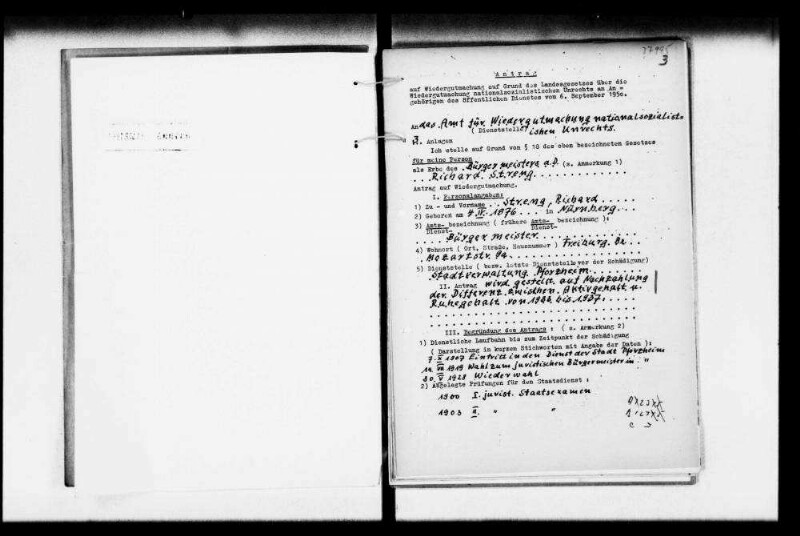 3
Antrag
auf Wiedergutmachung auf Grund des Landesgesetzes über die
Wiedergutmachung nationalsozialistischen Unrechts an An =
gehörigen des Öffentlichen Dienstes vom 6. September 1950.
An das Amt für Wiedergutmachung nationalsozialist-
( Dienststelle ) ischen Unrechts.
Anlagen
Ich stelle auf Grund von § 10 des oben bezeichneten Gesetzes
für meine Person
als Erbe des Bürgermeisters a.D. (s. Anmerkung 1)
Richard Streng
Antrag auf Wiedergutmachung.
I. Personalangaben:
1) Zu - und Vorname Streng, Richard
2) Geboren am 4 IV. 1876 in Nürnberg
3) Amts- bezeichnung ( frühere Amts- bezeichnung ):
Dienst- Dienst-
Bürgermeister
4) Wohnort ( Ort, Straße, Hausnummer ) Freiburg Br.
Mozartstr. 9a
5) Dienststelle ( bezw. letzte Dienststelle vor der Schädigung)
Stadtverwaltung Pforzheim
II. Antrag wird gestellt auf Nachzahlung
der Differenz zwischen Aktivgehalt u.
Ruhegehalt von 1933 bis 1937.
III. Begründung des Antrags : ( s. Anmerkung 2)
1) Dienstliche Laufbahn bis zum Zeitpunkt der Schädigung
( Darstellung in kurzen Stichworten mit Angabe der Daten ):
1907 Eintritt in den Dienst der Stadt Pforzheim
1919 Wahl zum juristischen Bürgermeister in "
30. V 1928 Wiederwahl
2) Abgelegte Prüfungen für den Staatsdienst :
1900 I. jurist. Staatsexamen
1903 II. " "